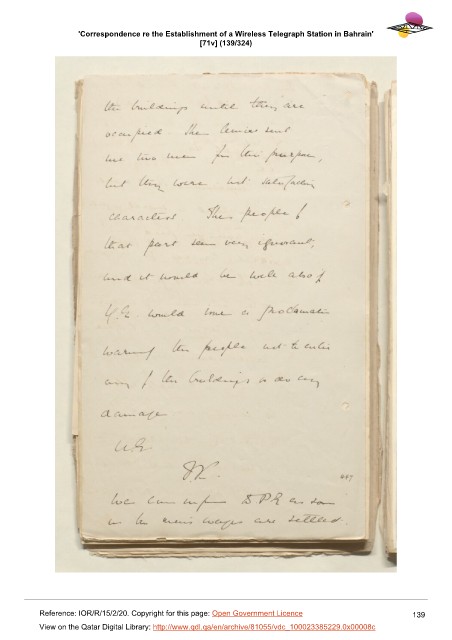 'Correspondence re the Establishment of a Wireless Telegraph Station in Bahrain'
[71v] (139/324)
the buildings until they are
occupied. The Amir sent
me two men for this purpose,
but they were not satisfactory
characters. The people of
that part seem very ignorant,
and it would be well also if
Y.E. would issue a proclamation
warning the people not to enter
any of the buildings or do any
damage.
U.E.
We can inform D.P.R. as soon
as the men's wages are settled.
Reference: IOR/R/15/2/20. Copyright for this page: Open Government Licence
View on the Qatar Digital Library: http://www.qdl.qa/en/archive/81055/vdc_100023385229.0x00008c
139